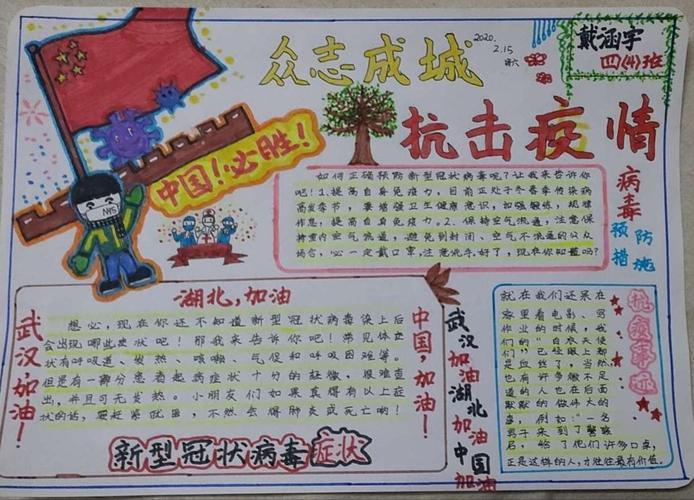 众志成城
2020.
2.15
戴涵宇
四(4)班
抗击疫情
中国!必胜!
如何正确预防新型冠状病毒呢?让我来告诉你
吧!1.提高自身免疫力,目前正处于冬春季传染病
高发季节,要增强卫生健康意识,加强锻炼,规律
作息,提高自身免疫力。2、保持空气流通,注意保
持室内空气流通,避免到封闭、空气不流通的公众
场合,必一定戴口罩,注意洗手。好了,现在你知道吗?
病毒
预防
措施
湖北,加油
武汉加油!
想必,现在你还不知道新型冠状病毒染上后
会出现哪些症状吧!那我来告诉你们吧!常见体征
状有呼吸道、发热、咳嗽、气促和呼吸困难等。
但是有一部分患者起病症状十分的轻微,很难查
出,并且可无发热。小朋友们如果真得有以上症
状的话,要赶紧就医,不然会得肺炎或死亡哟!
中国,加油!
新型冠状病毒症状
武汉
加油
湖北
加油
中国
加油
抗疫事迹
就在我们还呆在
家里看电影、写
作业的时候,我
们的"白衣天使
们"已经眼上都
是血丝了,当然,
也有许多微不足
道的人也在后面
默默的做伟大的
事,例如:一名
男子来到了警
后,给了他们许多口罩,
正是这样的人,才